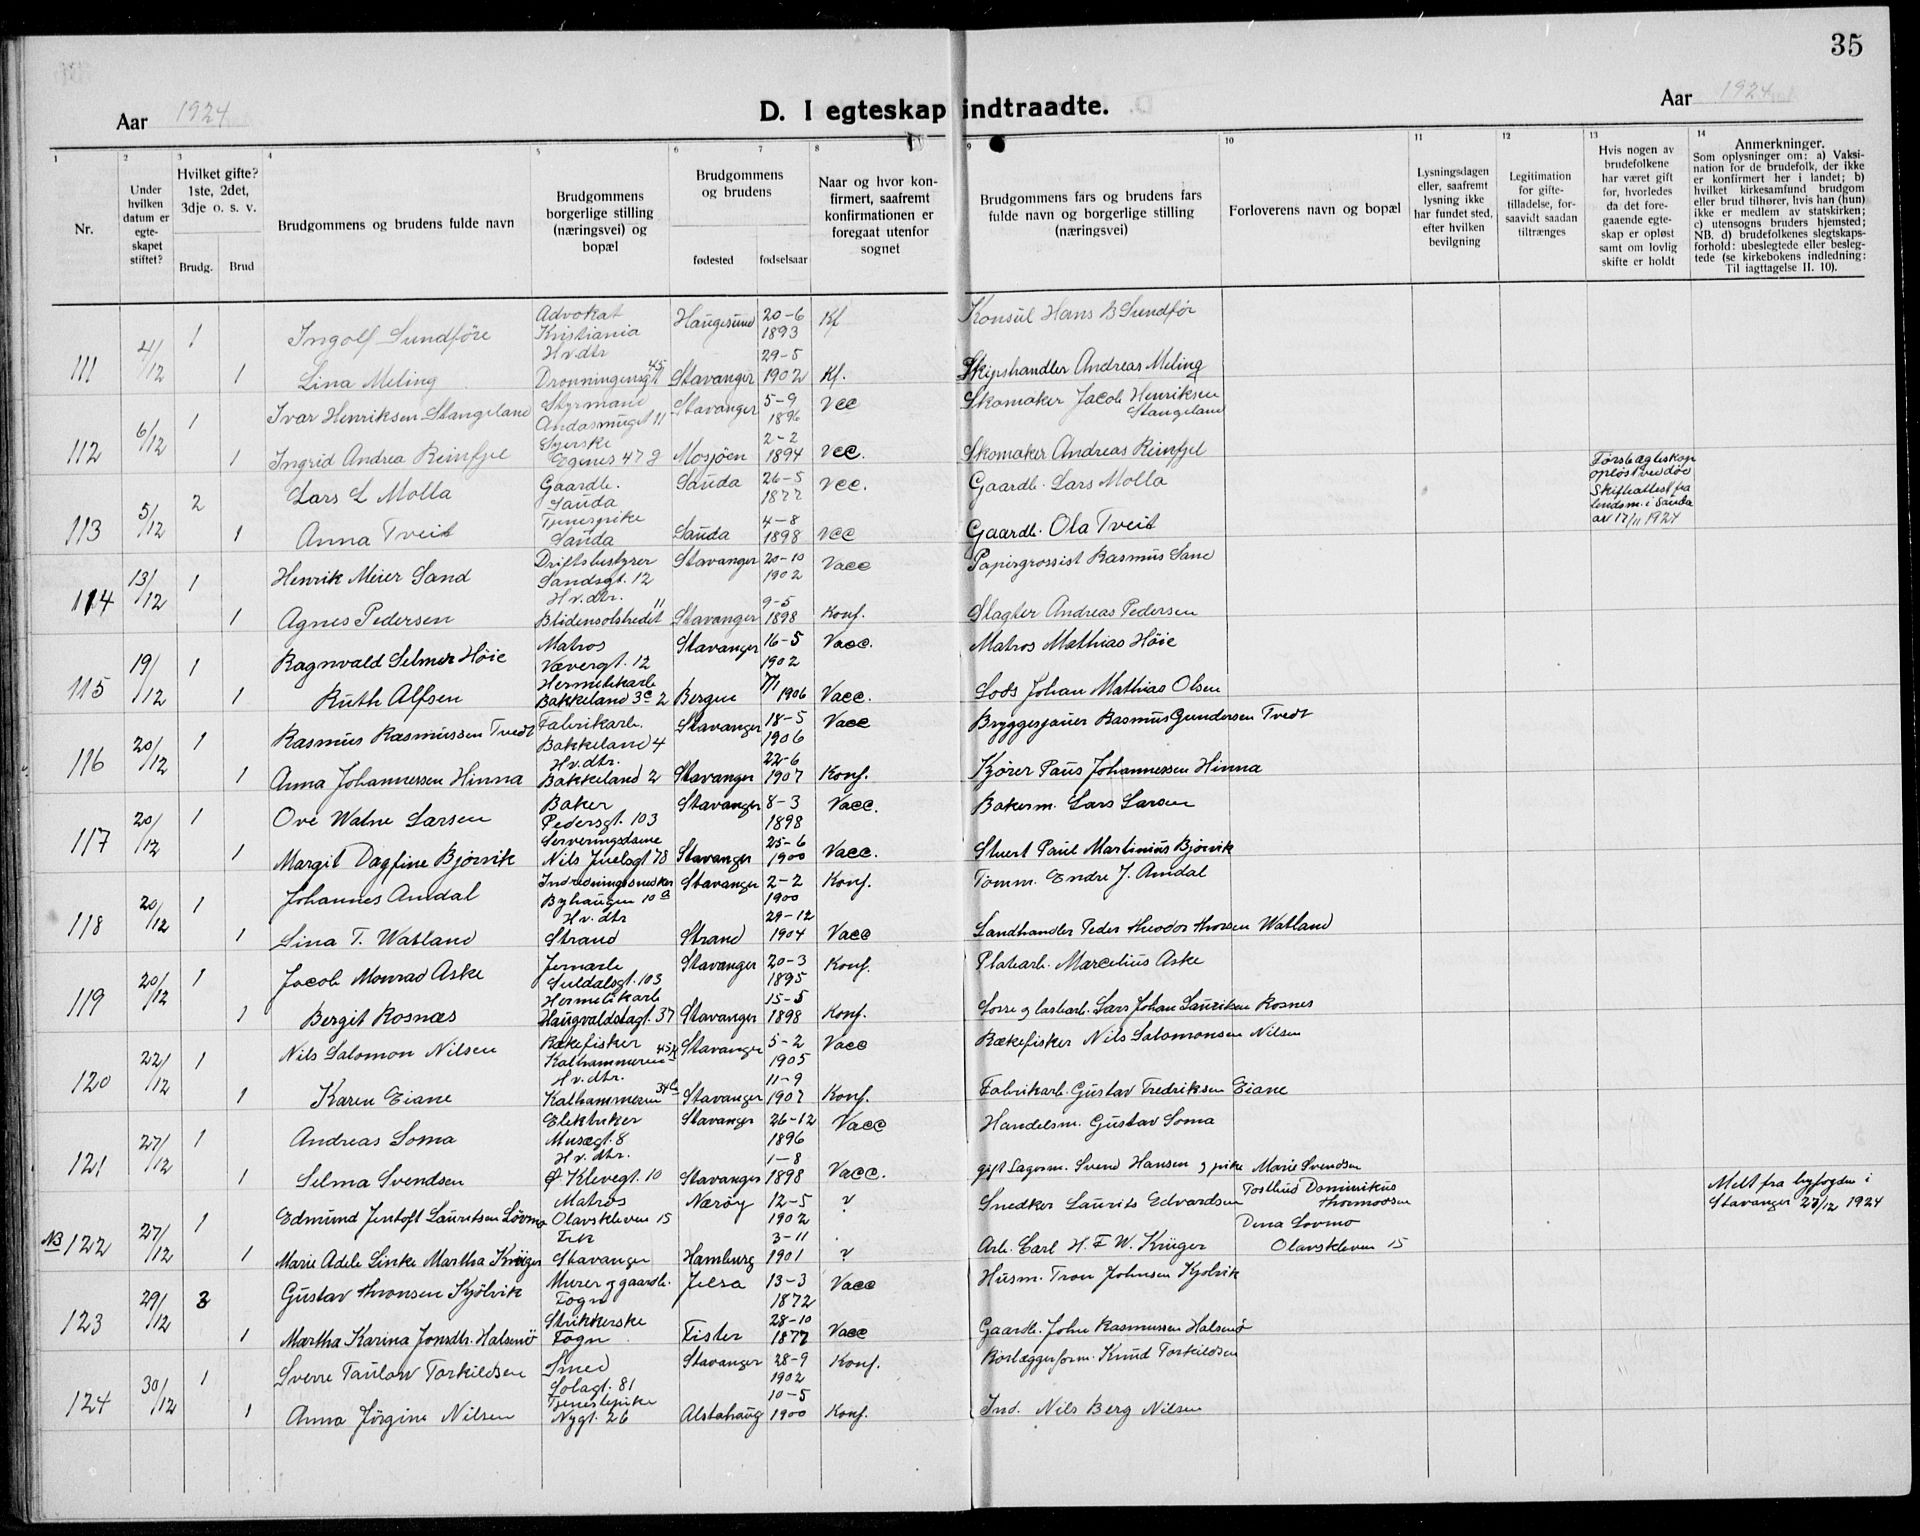 35
Aar 1924
D. I egteskap indtraadte.
Aar 1924
1
Nr.
2
Under hvilken datum er egte-skapet stiftet?
3
Hvilket gifte? 1ste, 2det, 3dje o. s. v.
Brudg. Brud
4
Brudgommens og brudens fulde navn
5
Brudgommens borgerlige stilling (næringsvei) og bopæl
6 7
Brudgommens og brudens
fødested fødselsaar
8
Naar og hvor kon-firmert, saafremt konfirmationen er foregaat utenfor sognet
9
Brudgommens fars og brudens fars fulde navn og borgerlige stilling (næringsvei)
10
Forloverens navn og bopæl
11
Lysningsdagen eller, saafremt lysning ikke har fundet sted, efter hvilken bevilgning
12
Legitimation for gifte-tilladelse, for-saavidt saadan tiltrænges
13
Hvis nogen av brudefolkene har været gift før, hvorledes da det fore-gaaende egte-skap er opløst samt om lovlig skifte er holdt
14
Anmerkninger.
Som oplysninger om: a) Vaksi-nation for de brudefolk, der ikke er konfirmert her i landet; b) hvilket kirkesamfund brudgom eller brud tilhører, hvis han (hun) ikke er medlem av statskirken; c) utensogns bruders hjemsted; NB. d) brudefolkenes slegtskaps-forhold: ubeslegtede eller besleg-tede (se kirkebokens indledning: Til iagttagelse II. 10).
111 4/12 1 Ingolf Sundføre Advokat Kristiania Haugesund 20-6 1893 Kf Konsul Hans B Sundfør
1 Lina Meling Hv.dtr Dronningensgt 45 Stavanger 29-5 1902 Kf. Skipshandler Andreas Meling
112 6/12 1 Ivar Henriksen Stangeland Styrmand Andasmuget 11 Stavanger 5-9 1896 Vcc Skomaker Jacob Henriksen Stangeland
1 Ingrid Andrea Reinfjel Syerske Egenes 47 Mosjøen 2-2 1894 Vcc. Skomaker Andreas Reinfjel
113 5/12 2 Lars L Molla Gaardb. Sauda Sauda 26-5 1877 Vcc. Gaardb. Lars Molla Første ægteskap opløst ved død Skifteattest fra lendsm. i Sauda av 17/11 1924
1 Anna Tveit Tjenespike Sauda Sauda 4-8 1898 Vcc Gaardb. Ola Tveit
114 13/12 1 Henrik Meier Sand Driftsbestyrer Sandsgt. 12 Stavanger 20-10 1902 Vacc Papirgrossist Rasmus Sand
1 Agnes Pedersen Hv.dtr. Blidensolstredet 11 Stavanger 9-5 1898 Konf. Slagter Andreas Pedersen
115 19/12 1 Ragnvald Selmer Høie Matros Vævergt. 12 Stavanger 16-5 1902 Vacc. Matros Mathias Høie
1 Ruth Alfsen Hermetikarb Bakkeland 3c 2 Bergen 7/1 1906 Vacc. Lods Johan Mathias Olsen
116 20/12 1 Rasmus Rasmussen Tvedt Fabrikarb. Bakkeland 4 Stavanger 18-5 1906 Vacc Bryggesjauer Rasmus Gundersen Tvedt
1 Anna Johannessen Hinna Hv.dtr. Bakkeland 2 Stavanger 22-6 1907 Konf. Kjører Paus Johannessen Hinna
117 20/12 1 Ove Watne Larsen Baker Pedersgt. 103 Stavanger 8-3 1898 Vacc. Bakerm. Lars Larsen
1 Margit Dagfine Bjørvik Serveringsdame Nils Juelsgt 78 Stavanger 25-6 1900 Vacc. Stuert Paul Martinius Bjørvik
118 20/12 1 Johannes Amdal Indredningssnedker Byhaugen 10 a Stavanger 2-2 1900 Konf. Tømm. Endre J. Amdal
1 Lina T. Watland Hv. dtr Strand Strand 29-12 1904 Vacc Landhandler Peder Theodor Thorsen Watland
119 20/12 1 Jacob Monrad Aske Jernarb Suldalsgt. 103 Stavanger 20-3 1895 Konf. Platearb. Marcelius Aske
1 Bergit Rosnæs Hermetikarb Haugvaldstagt. 37 Stavanger 15-5 1898 Konf. Losse og lastearb. Lars Johan Lauriksen Rosnes
120 22/12 1 Nils Salomon Nilsen Rækefisker Kalhammeren 45 Stavanger 5-2 1905 Vacc Rækefisker Nils Salomonsen Nilsen
1 Karen Eiane Hv.dtr. Kalhammeren 34 b Stavanger 11-9 1907 Konf. Fabrikarb. Gustav Fredriksen Eiane
121 27/12 1 Andreas Soma Elektriker Musægt. 8 Stavanger 26-12 1896 Vacc Handelsm. Gustav Soma
1 Selma Svendsen Hv. dtr. Ø. Klevegt. 10 Stavanger 1-8 1898 Vacc. gift Lagerm. Svend Hansen og pike Marie Svendsen
NB 122 27/12 1 Edmund Jentoft Lauritsen Løvmo Matros Olavskleven 15 Nærøy 12-5 1902 ? Snedker Laurits Edvardsen Posthus Dominikus Thormodsen Melt fra byfogden i Stavanger 27/12 1924
1 Marie Adele Sinke Martha Krüger Frk Stavanger Hamburg 3-11 1901 ? Arb. Carl H. F. W. Krüger Dina Lovmo Olavskleven 15
123 29/12 3 Gustav Thronsen Kjölvik Murer og gaardb. Fogn Jelsa 13-3 1872 Vacc Husm. Tron Johnsen Kjølvik
1 Martha Karina Jonsdtr. Halsnø Strikkerske Fogn Fister 28-10 1877 Vacc Gaardb. John Rasmussen Halsnø
124 30/12 1 Sverre Taulow Torkildsen Smed Solagt. 81 Stavanger 28-9 1902 Konf. Rørlæggerform. Knud Torkildsen
1 Anna Jørgine Nilsen Tjenestepike Nygt. 26 Alstahaug 10-5 1900 Konf. Ind. Nils Berg Nilsen